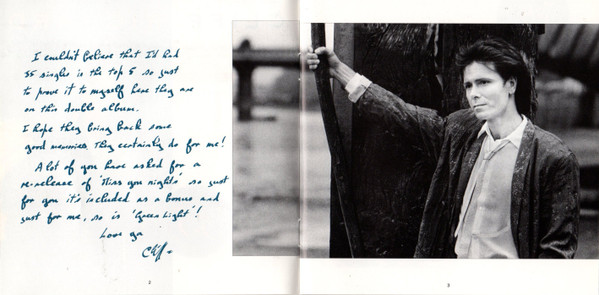 I couldn't believe that I'd had
35 singles in the top 5 so just
to prove it to myself here they are
on this double album.
I hope they bring back some
good memories. They certainly do for me!
A lot of you have asked for a
re-release of 'Miss you nights' so just
for you it's included as a bonus and
just for me, so is 'Green Light'!
Love ya
Cliff
2
3